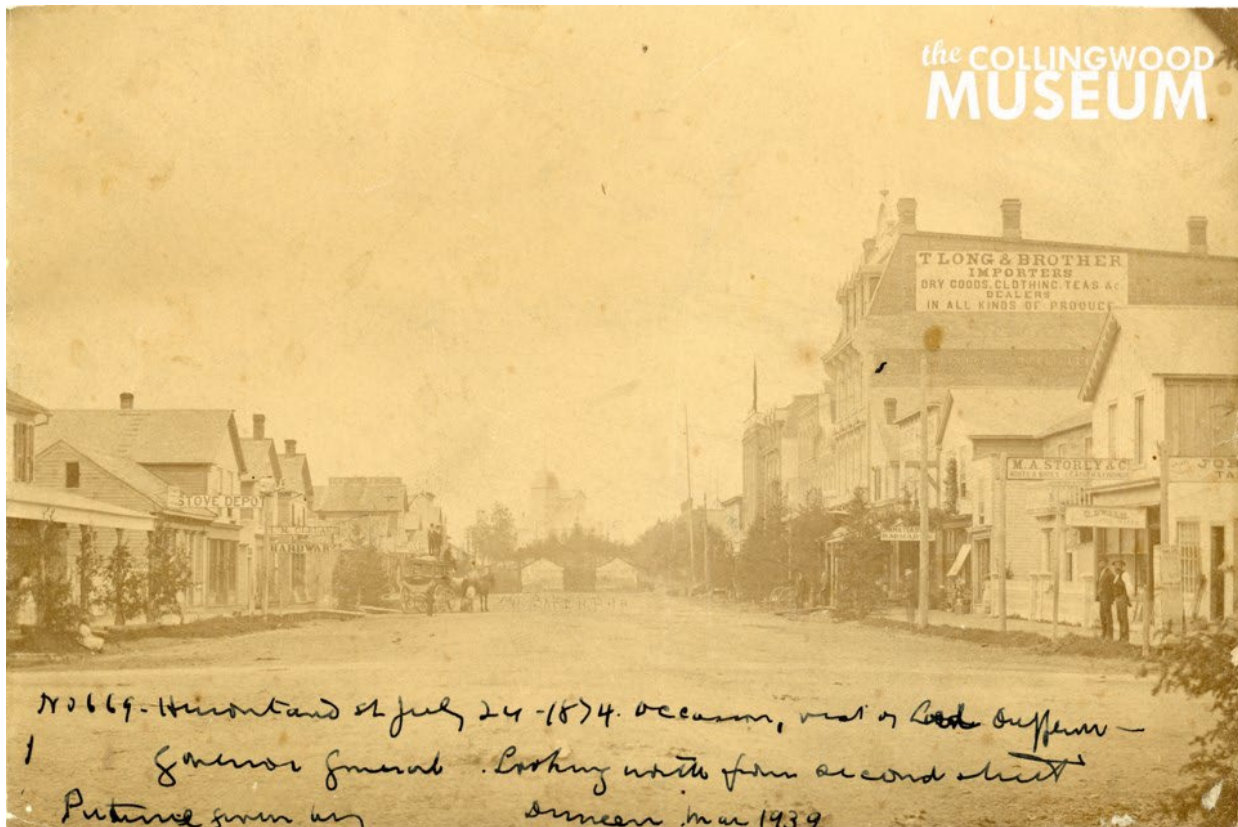 the COLLINGWOOD
MUSEUM
T LONG & BROTHER
IMPORTERS
DRY GOODS, CLOTHING, TEAS, &c.
DEALERS
IN ALL KINDS OF PRODUCE
STOVE DEPOT
HARDWAR
M. A. STOREY & C
No 669 - Hurontario st July 24 - 1874. occasion, visit of Lord Dufferin -
1
Governor General. Looking north from second street
Picture given by Duncan, Mar 1939